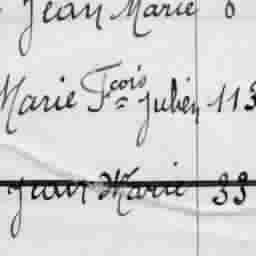 Jean Marie 8
Marie Fcois Julien 113
Jean Marie 33